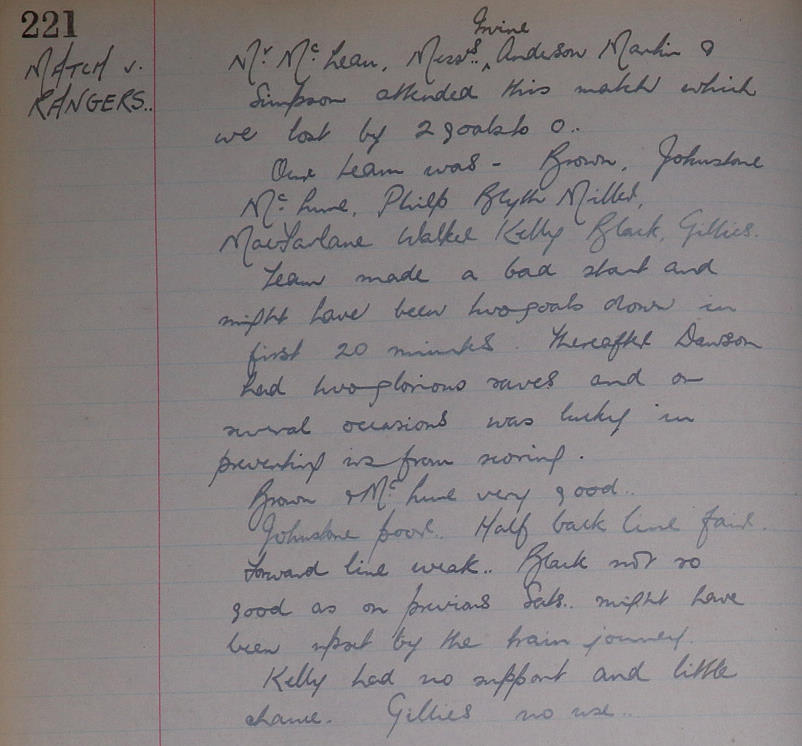 221
MATCH v.
RANGERS..
Irvine
Mr. McLean, Messrs. ^ Anderson Martin &
Simpson attended this match which
we lost by 2 goals to 0..
Our team was - Brown, Johnstone
McLure, Philp Blyth Miller,
MacFarlane Walker Kelly Black, Gillies.
Team made a bad start and
might have been two goals down in
first 20 minutes. Thereafter Dawson
had two glorious saves and on
several occasions was lucky in
preventing us from scoring.
Brown & McLure very good..
Johnstone poor.. Half back line fair.
Forward line weak.. Black not so
good as on previous Sats.. might have
been upset by the train journey.
Kelly had no support and little
chance. Gillies no use..